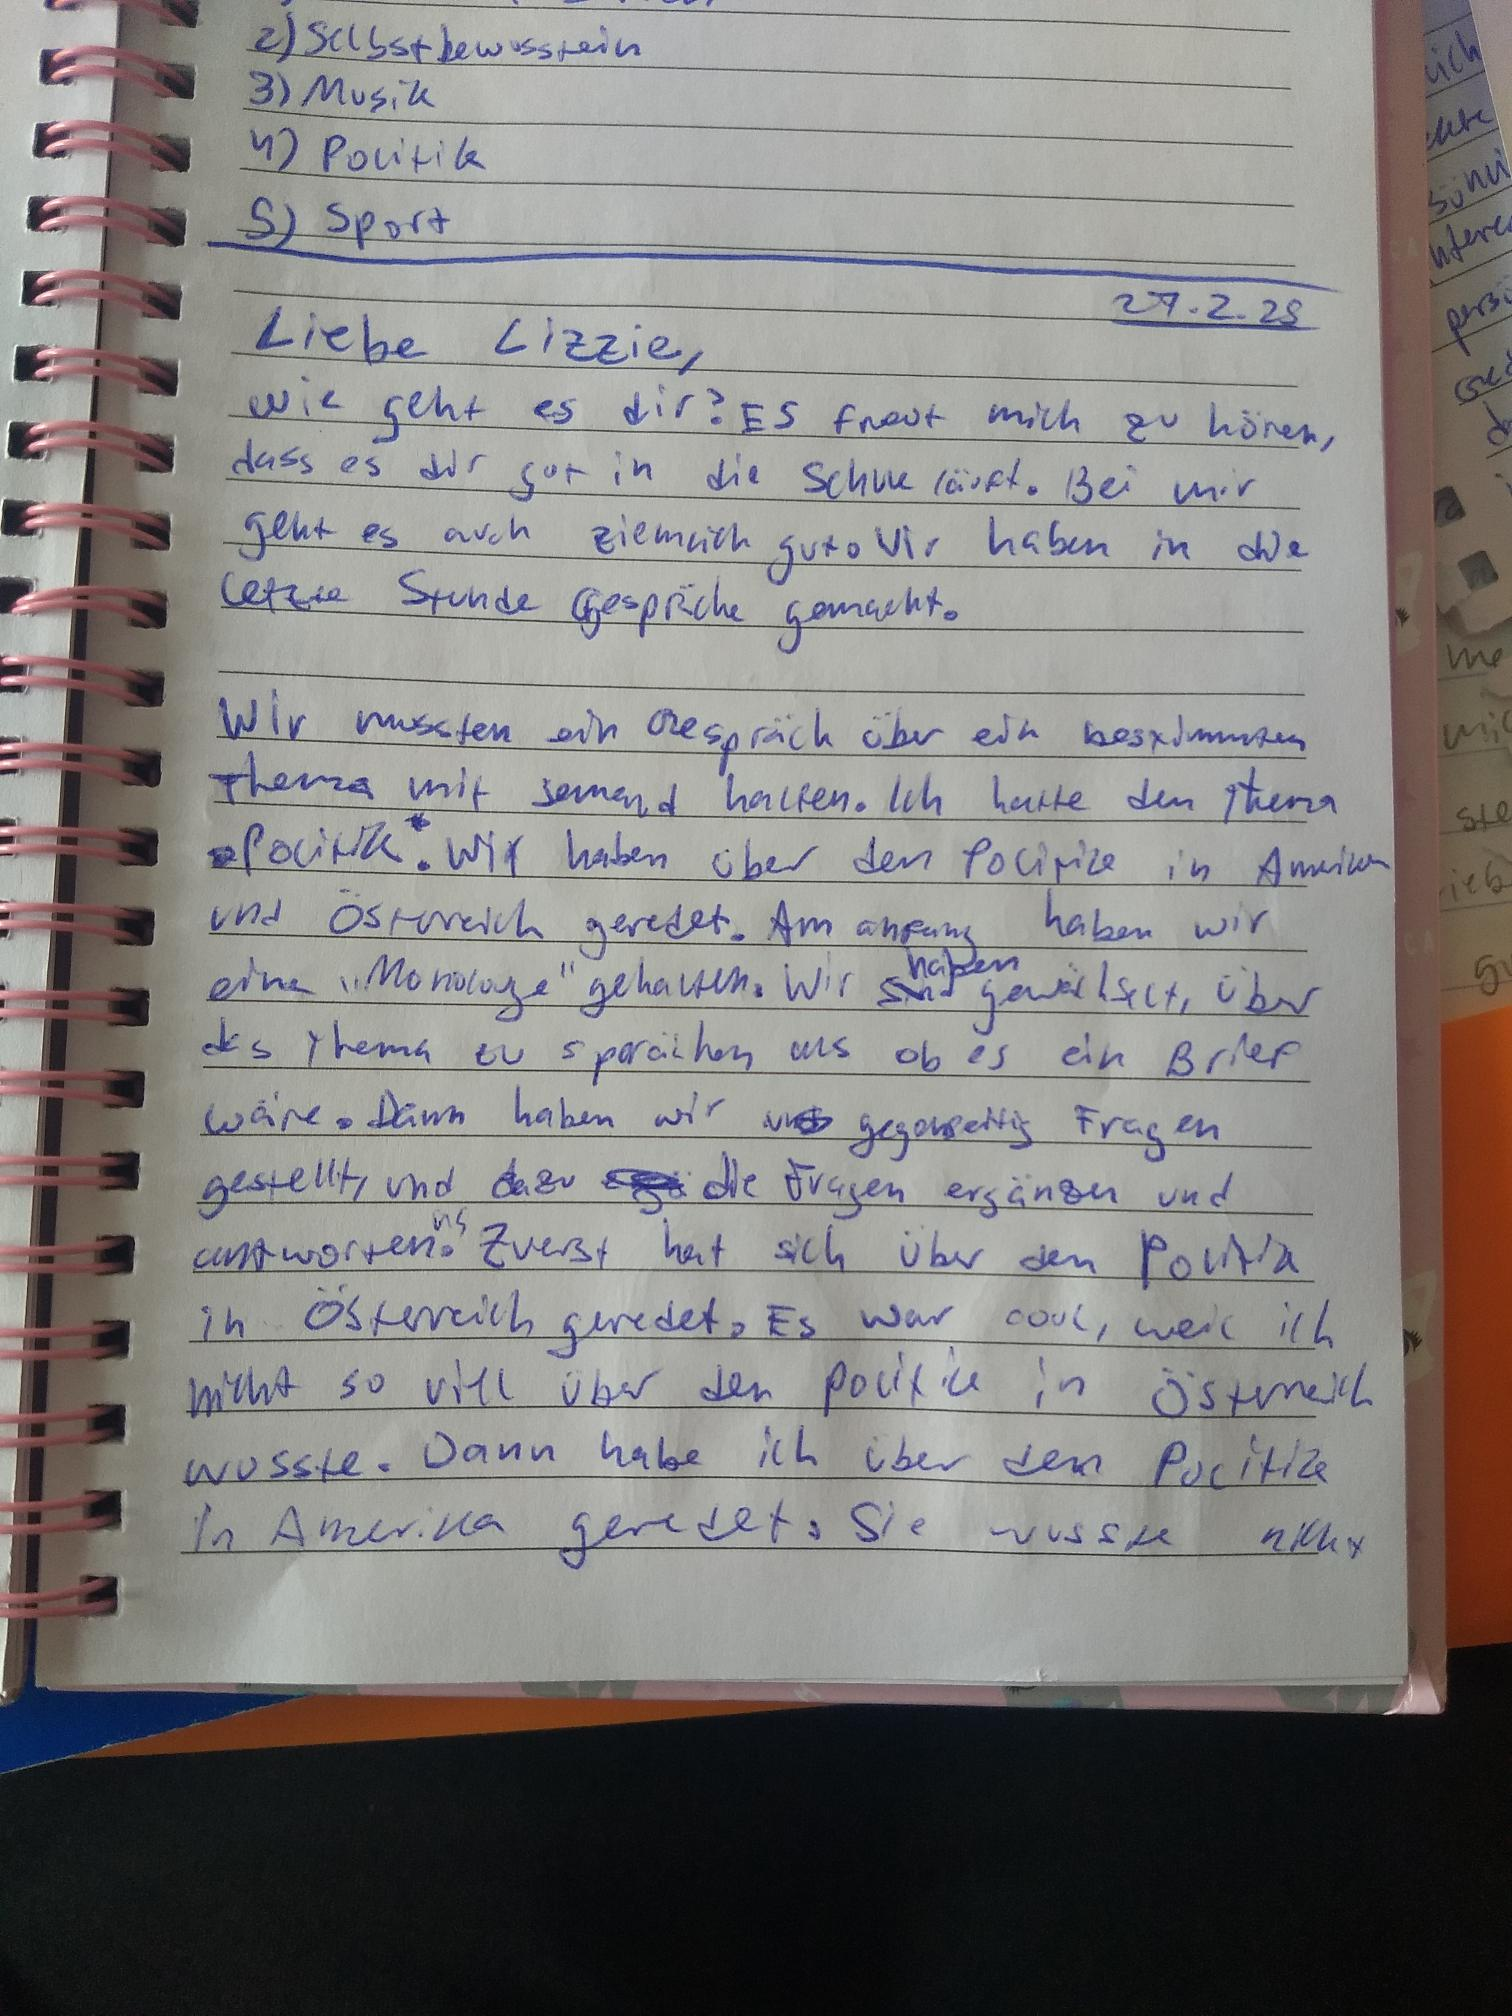 2) Selbstbewusstein
3) Musik
4) Politik
5) Sport
27.2.25
Liebe Lizzie,
wie geht es dir? Es freut mich zu hören,
dass es dir gut in die Schule läuft. Bei mir
geht es auch ziemlich gut. Wir haben in die
letzte Stunde Gespräche gemacht.
Wir mussten ein Gespräch über ein bestimmten
Thema mit jemand halten. Ich hatte den Thema
Politik. Wir haben über den Politik in Amerika
und Österreich geredet. Am anfang haben wir
eine "Monologe" gehalten. Wir haben gewählselt, über
das Thema zu sprächen als ob es ein Brief
wäre. Dann haben wir uns gegenseitig Fragen
gestellt, und dazu die Fragen ergänzen und
antworten. Zuerst hat sich über den Politik
in Österreich geredet. Es war cool, weil ich
nicht so viel über den politik in Österreich
wusste. Dann habe ich über den Politik
in Amerika geredet. Sie wusste nicht